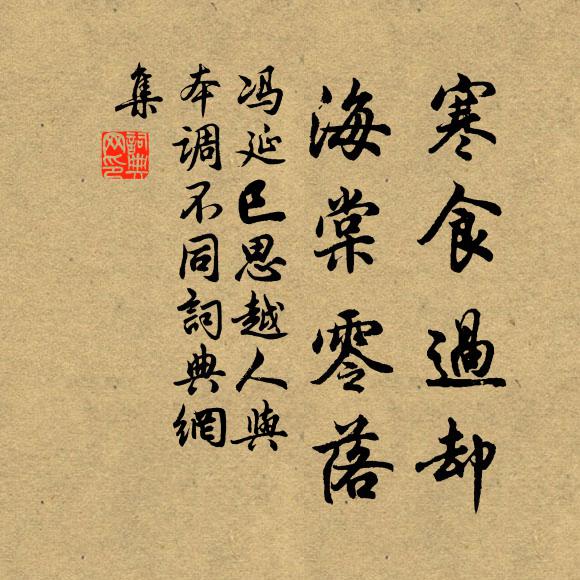 寒食過却
海棠零落
冯延巳思越人與
本調不同詞典網
集
詞典
网印